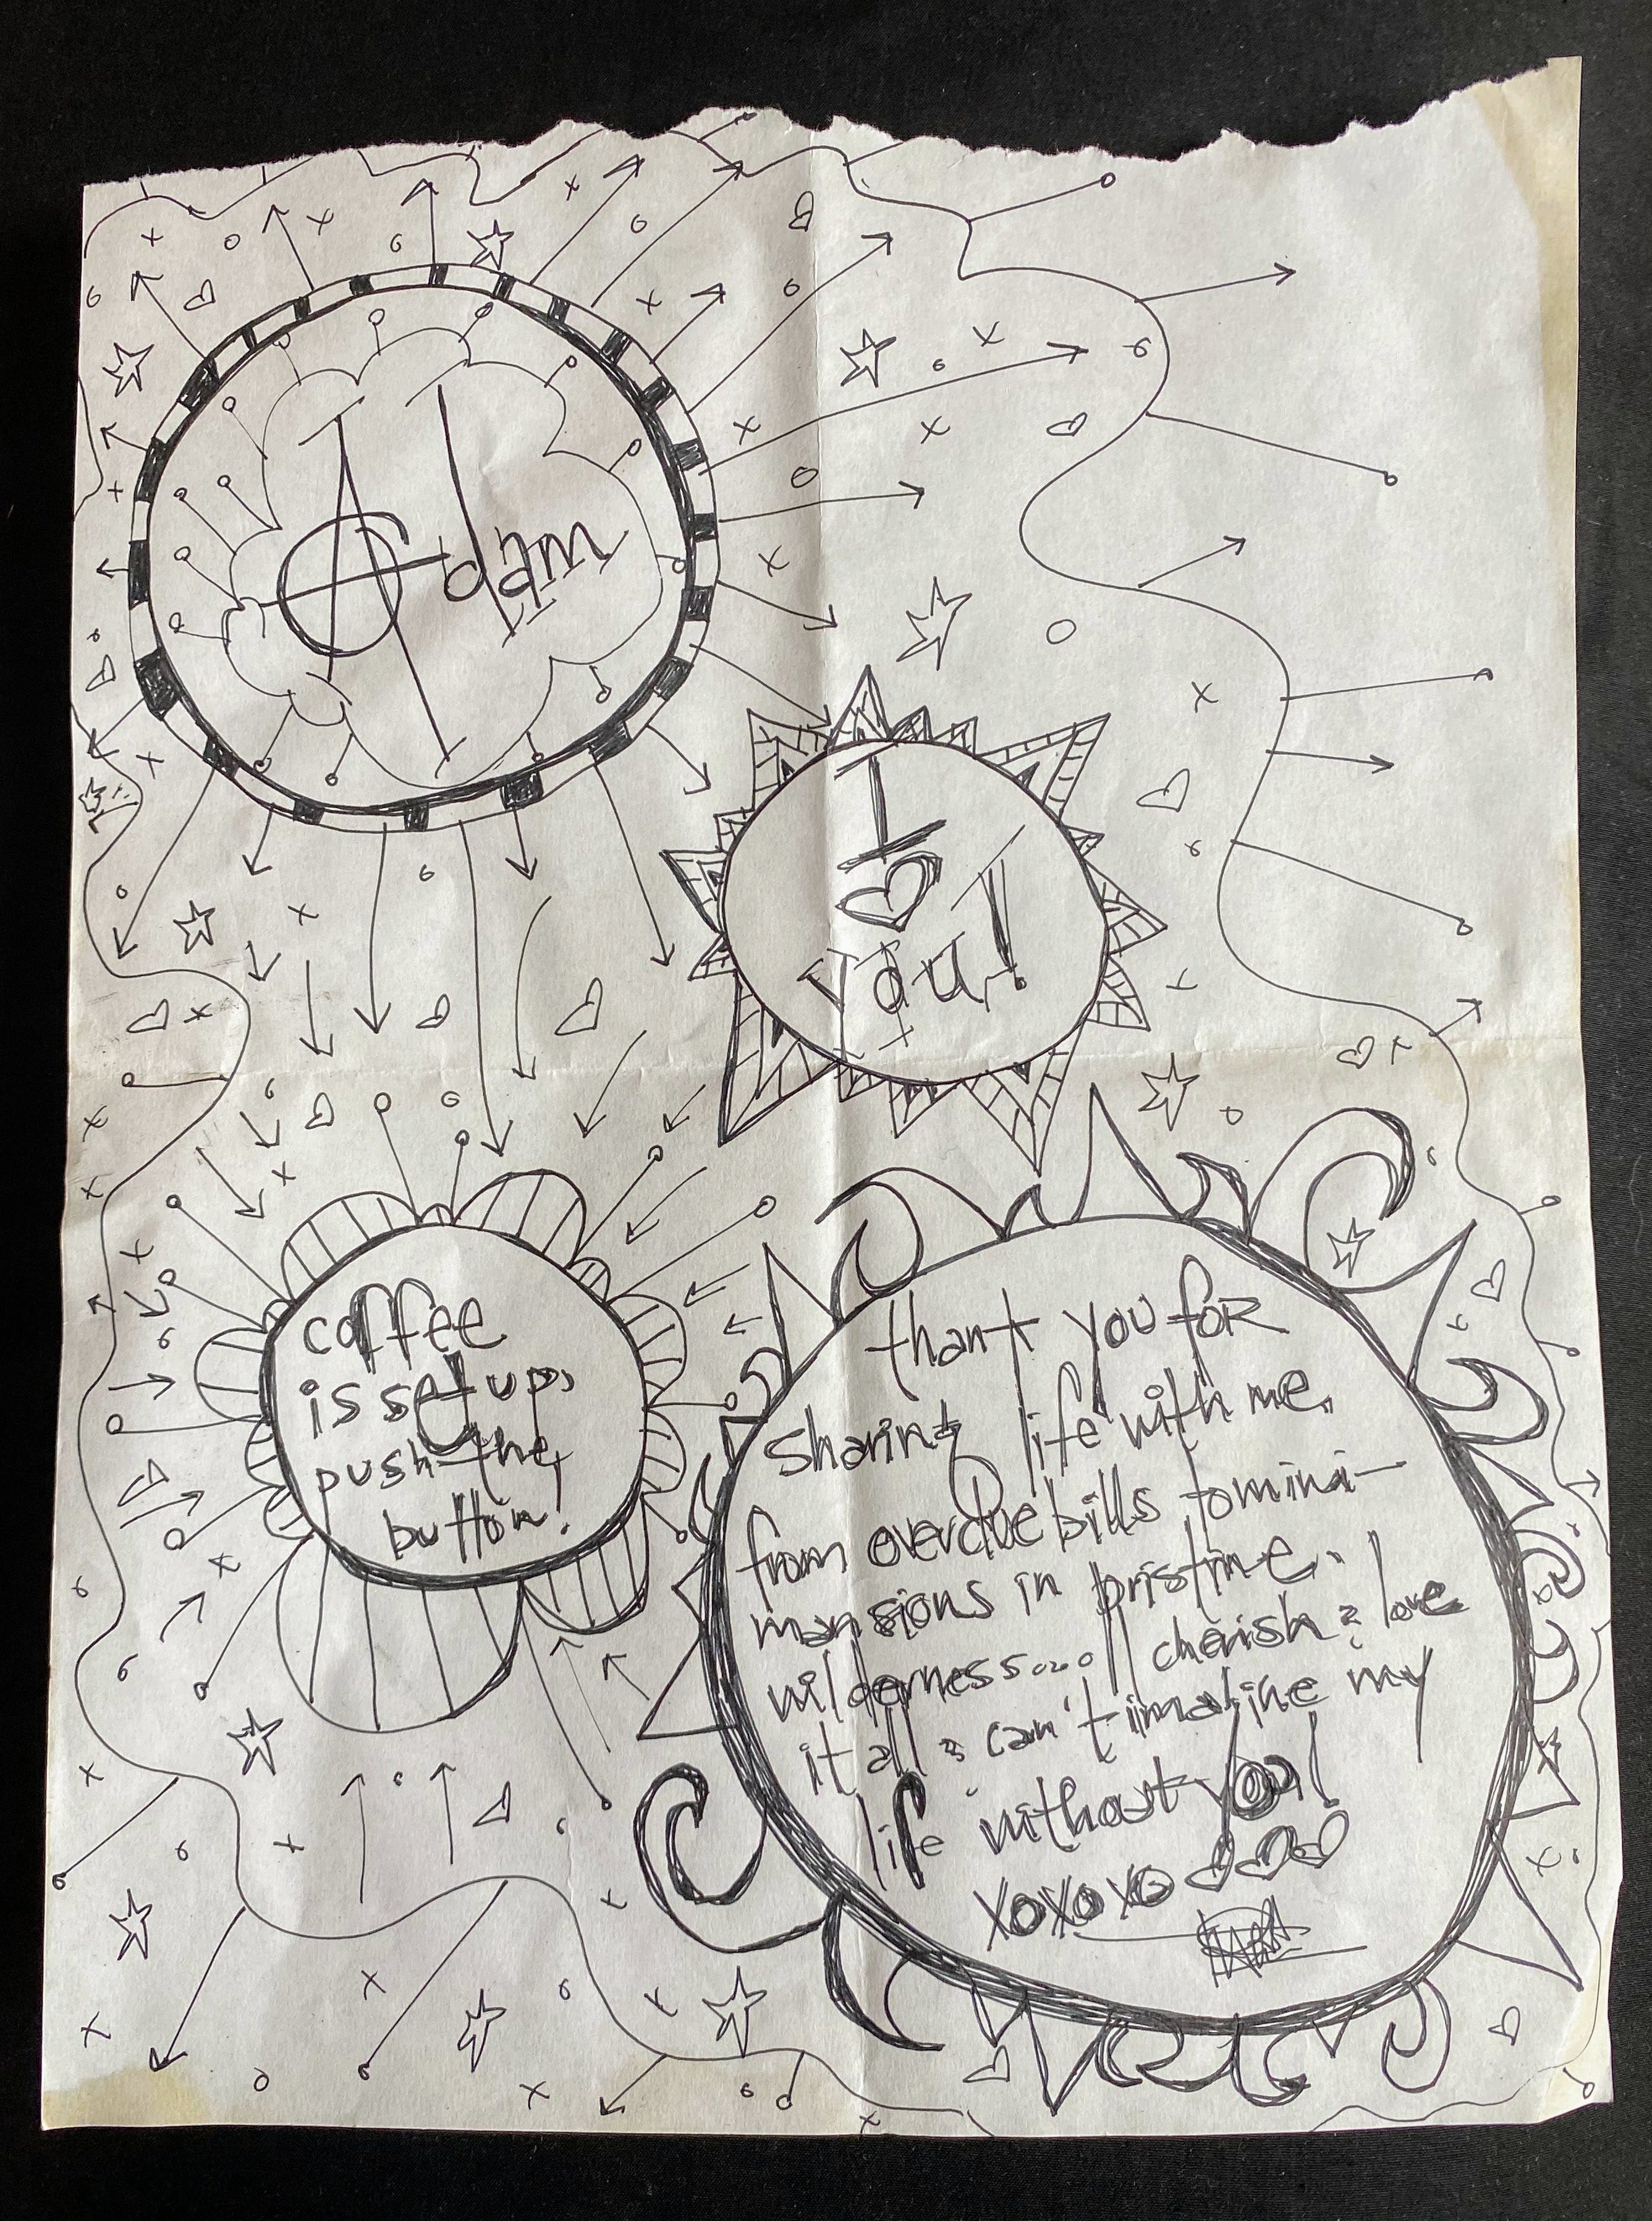 Adam
I ♡
you!
coffee
is set up,
push the
button!
thank you for
sharing life with me,
from overdue bills to mini-
mansions in pristine
wilderness.... I cherish & love
it all & can't imagine my
life without you!
XOXOXO ♡♡♡